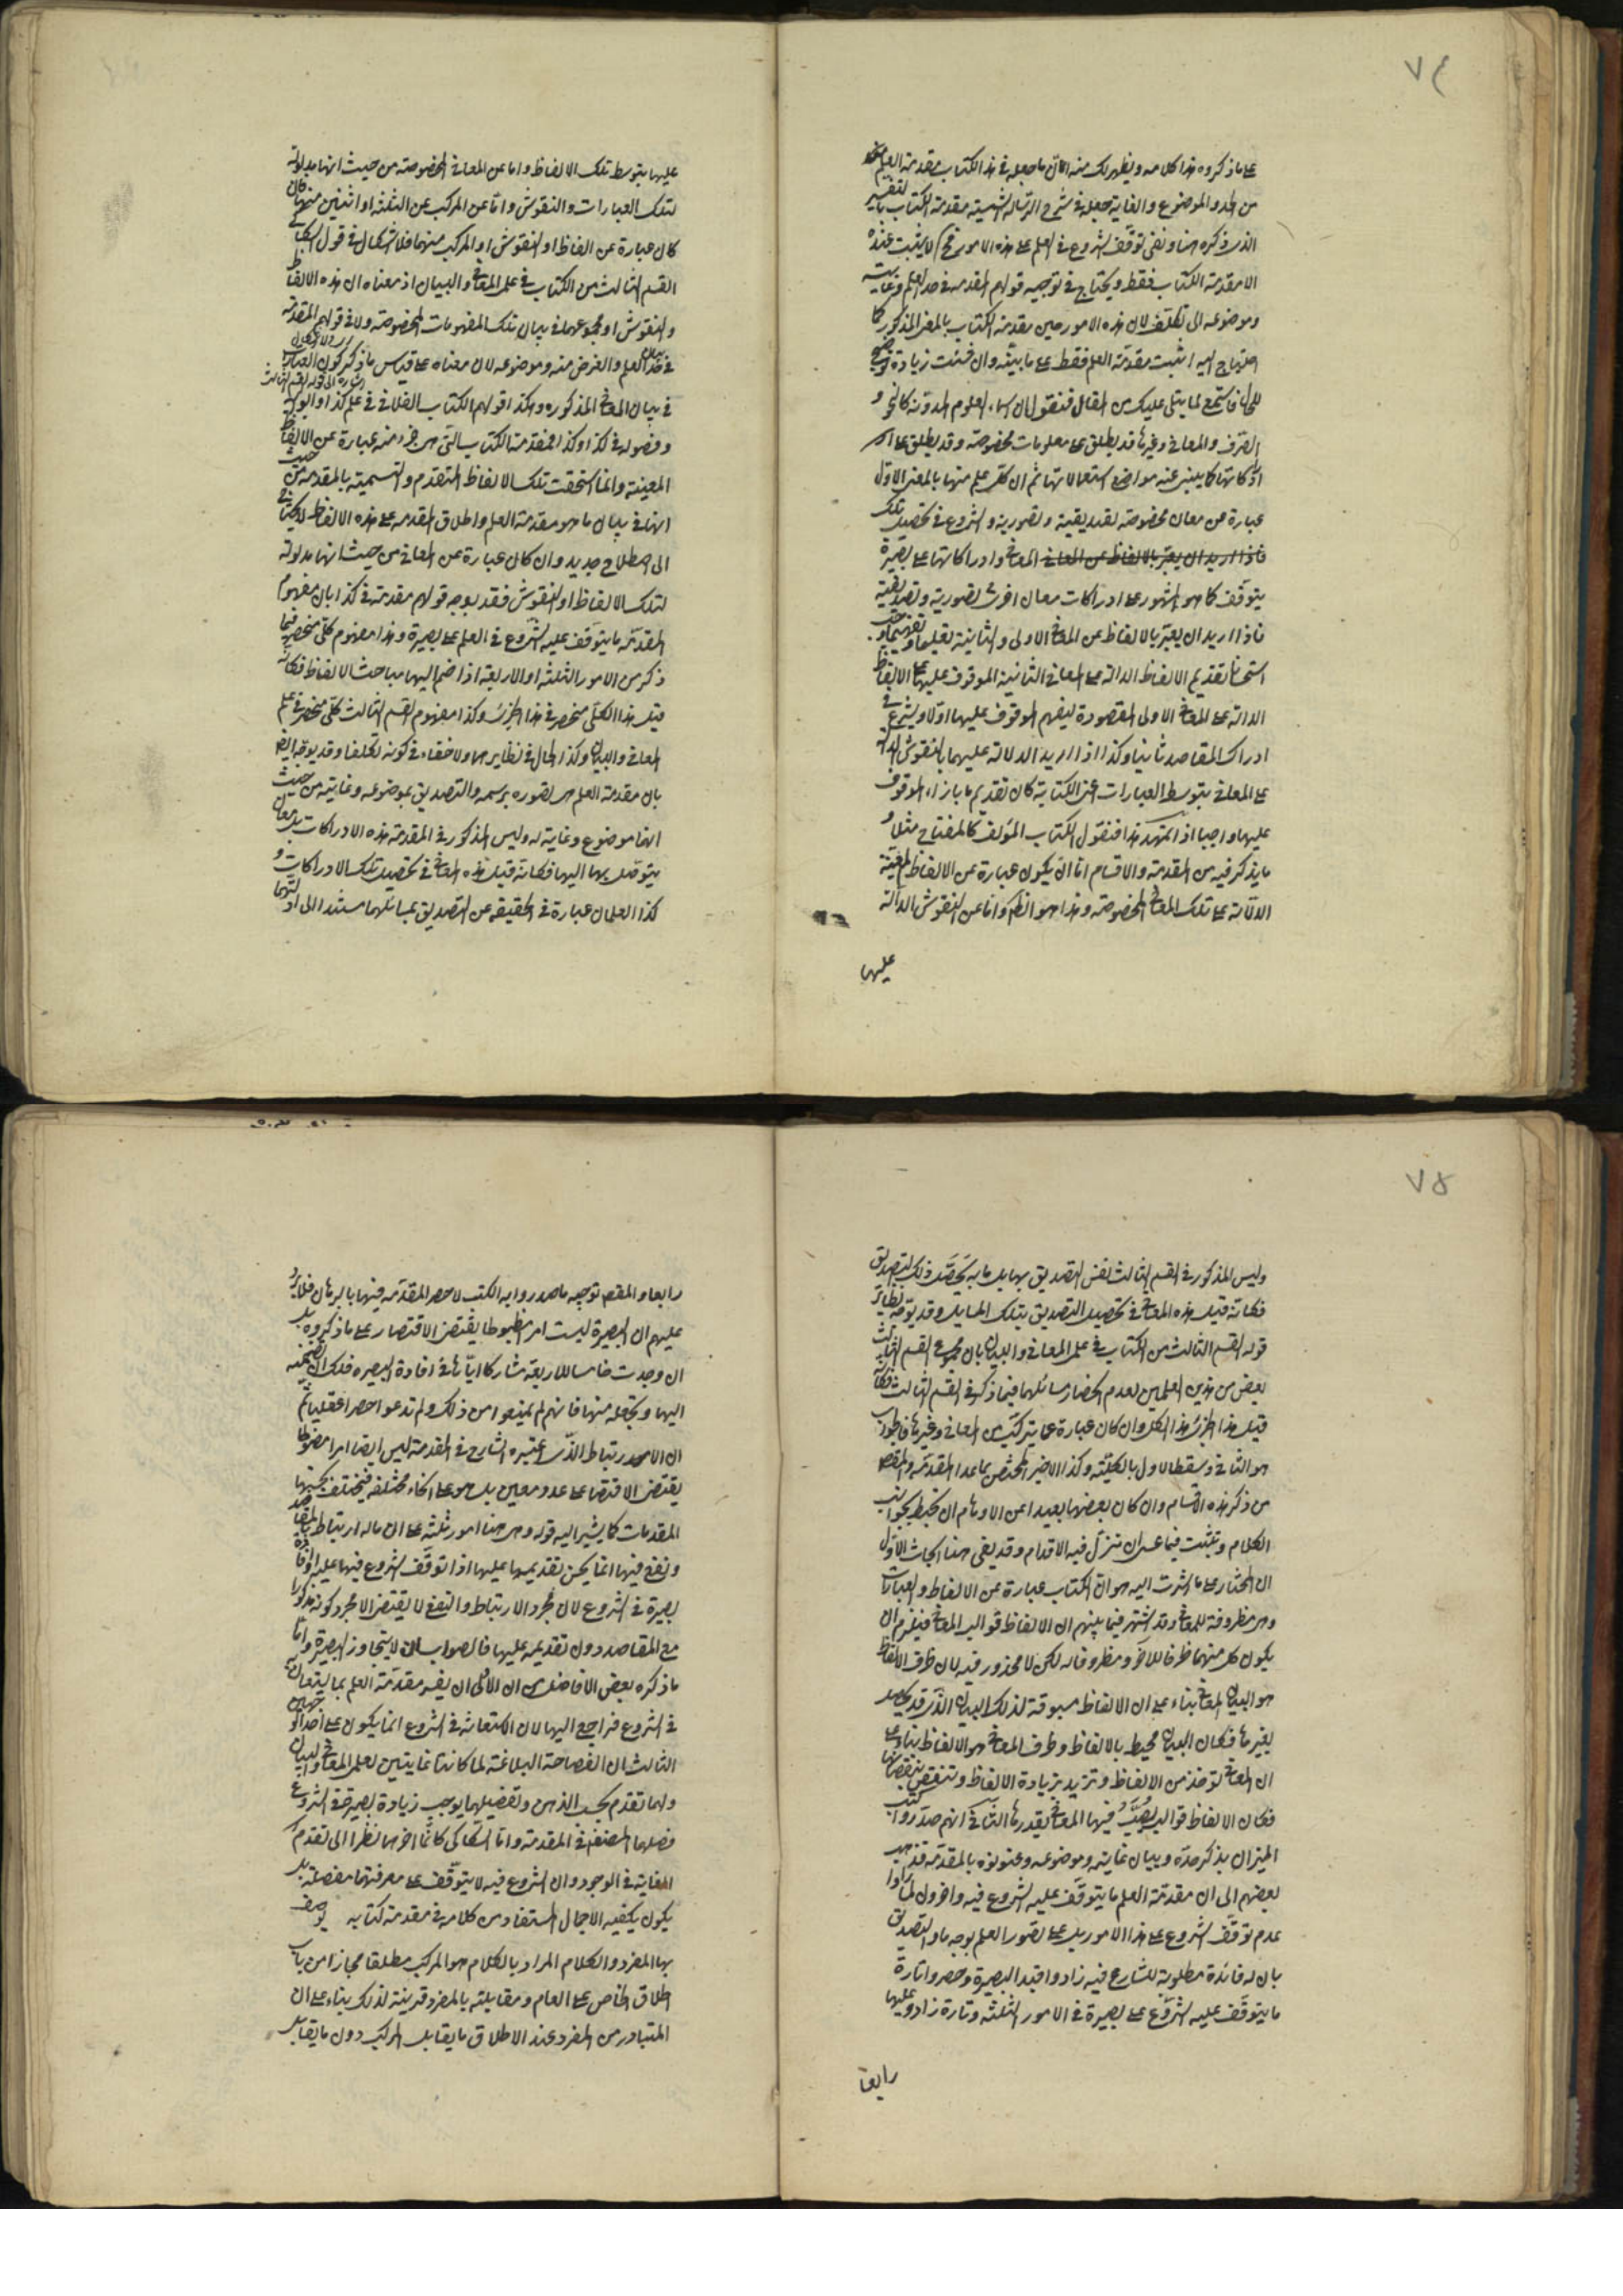 ٧٤
على ما ذكروه هذا كلامه ويظهر لك منه الآن ما جعله في هذا الكتاب مقدمة العلم
من الحد والموضوع والغاية جعله في شرح الرسالة الشمسية مقدمة الكتاب بالتفسير
الذي ذكره هنا ونفى توقف الشروع في العلم على هذه الامور فح لا يثبت عنده
الا مقدمة الكتاب فقط ويحتاج في توجيه قولهم المقدمة في حد العلم وغايته
وموضوعه الى تكلف لان هذه الامور عين مقدمة الكتاب بالمعنى المذكور كما
احتاج اليه اثبت مقدمة العلم فقط على ما بينه وان شئت زيادة توضيح
للحال فاستمع لما يتلى عليك من المقال فنقول ان اسماء العلوم المدونة كالنحو و
الصرف والمعاني وغيرها قد يطلق على معلومات مخصوصة وقد يطلق على
ادراكاتها كما يبنى عنه مواضع استعمالاتها ثم ان كل علم منها بالمعنى الاول
عبارة عن معان مخصوصة تصديقية وتصورية والشروع في تحصيل تلك
فاذا اريد ان يعبر بالالفاظ عن المعاني المعاني وادراكاتها على بصيرة
يتوقف كما هو المشهور على ادراكات معان اخرى تصورية وتصديقية
فاذا اريد ان يعبر بالالفاظ عن المعاني الاولى والثانية تعليما وتفهيما
استحسانا تقديم الالفاظ الدالة على المعاني الثانية الموقوف عليها على الالفاظ
الدالة على المعاني الاولى المقصودة ليفهم الموقوف عليها اولا ويشرع في
ادراك المقاصد ثانيا وكذا اذا اريد الدلالة عليهما بالنقوش الدالة
على المعاني بتوسط العبارات اعني الكتابة كان تقديم ما بازاء الموقوف
عليها واجبا اذا تمهد هذا فنقول الكتاب المؤلف كالمفتاح مثلا و
ما يذكر فيه من المقدمة والاقسام اما ان يكون عبارة عن الالفاظ المعينة
الدالة على تلك المعاني المخصوصة وهذا هو الظاهر واما عن النقوش الدالة
عليها
عليها بتوسط تلك الالفاظ واما عن المعاني المخصوصة من حيث انها مدلولة
لتلك العبارات والنقوش واما عن المركب من الثلثة او اثنين منها فان
كان عبارة عن الفاظ او النقوش او المركب منهما فلا اشكال في قول السكاكي
القسم الثالث من الكتاب في علمي المعاني والبيان اذ معناه ان هذه الالفاظ
والنقوش او مجموعهما في بيان تلك المفهومات المخصوصة ولا في قولهم المقدمة
في بيان حد العلم والغرض منه وموضوعه لان معناه على قياس ما ذكر كون العبارات
في بيان المعاني المذكورة وهكذا قولهم الكتاب الفلاني في علم كذا وابوابه
وفصوله في كذا وكذا فمقدمة الكتاب التي هي جزء منه عبارة عن الالفاظ
المعينة وانما استحقت تلك الالفاظ التقدم والتسمية بالمقدمة من حيث
انها في بيان ما هو مقدمة العلم واطلاق المقدمة على هذه الالفاظ لا يحتاج
الى اصطلاح جديد وان كان عبارة عن المعاني من حيث انها مدلولة
لتلك الالفاظ او النقوش فقد يوجه قولهم مقدمة في كذا بان مفهوم
المقدمة ما يتوقف عليه الشروع في العلم على بصيرة وهذا مفهوم كلي منحصر فيما
ذكر من الامور الثلثة او الاربعة اذا ضم اليها مباحث الالفاظ فكانه
قيل هذا الكلي منحصر في هذا الجزئي وكذا مفهوم القسم الثالث كلي منحصر في علم
المعاني والبيان وكذا الحال في نظايرها ولا خفاء في كونه تكلفا وقد يوجه ايضا
بان مقدمة العلم هي تصوره برسمه والتصديق بموضوعه وغايته من حيث
انها موضوع وغاية له وليس المذكور في المقدمة هذه الادراكات بل معان
يتوصل بها اليها فكانه قيل هذه المعاني في تحصيل تلك الادراكات و
كذا العلمان عبارة في الحقيقة عن التصديق بمسائلهما مستندا الى ادلتهما
٧٥
وليس المذكور في القسم الثالث نفس التصديق بها بل ما به يتحصل ذلك التصديق
فكانه قيل هذه المعاني في تحصيل التصديق بتلك المسايل وقد يوجه نظائر
قوله القسم الثالث من الكتاب في علمي المعاني والبيان بان مجموع القسم الثالث
بعض من هذين العلمين لعدم انحصار مسائلهما فيما ذكر في القسم الثالث فكانه
قيل هذا الجزئ هذا الكل وان كان عبارة عما يتركب من المعاني وغيرها فالجواب
هو الثاني وسقط الاول بالكلية وكذا الاخير المختص بما عدا المقدمة والمقصد
من ذكر هذه الاقسام وان كان بعضها بعيدا عن الاوهام ان تحيط بجوانب
الكلام وتثبت فيما عسى ان تزل فيه الاقدام وقد بقي هنا ابحاث الاول
ان المختار على ما اشرت اليه هو ان الكتاب عبارة عن الالفاظ والعبارات
وهي مظروفة للمعاني وقد اشتهر فيما بينهم ان الالفاظ قوالب المعاني فيلزم ان
يكون كل منهما ظرفا للاخر ومظروفا له لكن لا محذور فيه لان ظرف الالفاظ
هو البيان المعاني بناء على ان الالفاظ مسوقة لذلك البيان الذي قد يحصل
بغيرها فكان البيان محيط بالالفاظ وظرف المعاني هو الالفاظ بناء على
ان المعاني تؤخذ من الالفاظ وتزيد بزيادة الالفاظ وتنقص بنقصانها
فكان الالفاظ قوالب يصب فيها المعاني بقدرها الثاني انهم صدروا كتب
الميزان بذكر حده وبيان غايته وموضوعه وعنونوه بالمقدمة فذهب
بعضهم الى ان مقدمة العلم ما يتوقف عليه الشروع فيه واخرون لما راوا
عدم توقف الشروع على هذا الامور بل على تصور العلم بوجه ما والتصديق
بان له فائدة مطلوبة للشارع فيه زادوا قيد البصيرة وحصروا تارة
ما يتوقف عليه الشروع على بصيرة في الامور الثلثة وتارة زادوا عليها
رابعا
رابعا والمقصم توجيه ما صدروا به الكتب لا حصر المقدمة فيها بالبرهان فلا يرد
عليهم ان البصيرة ليست امرا مضبوطا يقتضي الاقتصار على ما ذكروه بل
ان وجدت خامسا للاربعة مشاركا اياها في افادة البصيرة فلك ان تضمه
اليها وتجعله منها فانهم لم يمنعوا من ذلك ولم تدعوا حصرا عقليا ثم
ان الامر ارتباط الذي اعتبره الشارح في المقدمة ليس ايضا امرا مضبوطا
يقتضي الاقتصار على عدد معين بل هو على انحاء مختلفة فتختلف بحسبها
المقدمات كما يشير اليه قوله وهي هنا امور ثلثة على ان ماله ارتباط بالمقاصد
ونفع فيها انما يحسن تقديمها عليها اذا توقف الشروع فيها عليه او افاد
بصيرة في الشروع لان مجرد الارتباط والنفع لا يقتضي الا مجرد كونه مذكورا
مع المقاصد دون تقديمه عليها فالصواب ان لا يتجاوز البصيرة واما
ما ذكره بعض الافاضل من ان الاولى ان يفسر مقدمة العلم بما يستعان به
في الشروع فراجع اليها لان الاستعانة في الشروع انما يكون على احد الوجهين
الثالث ان الفصاحة البلاغة لما كانتا غايتين لعلمي المعاني والبيان
ولهما تقدم بحسب الذهن وتفصيلهما يوجب زيادة بصيرة في الشروع
فصلهما المصنف في المقدمة واما السكاكي فانما اخرهما نظرا الى تقدم
الغاية في الوجود وان الشروع فيه لا يتوقف على معرفتهما مفصلة بل
يكون يكفيه الاجمال المستفاد من كلامه في مقدمة كتابه يوصف
بها المفرد والكلام المراد بالكلام هو المركب مطلقا مجازا من باب
اطلاق الخاص على العام ومقابلته بالمفرد قرينة لذلك بناء على ان
المتبادر من المفرد عند الاطلاق ما يقابل المركب دون ما يقابل